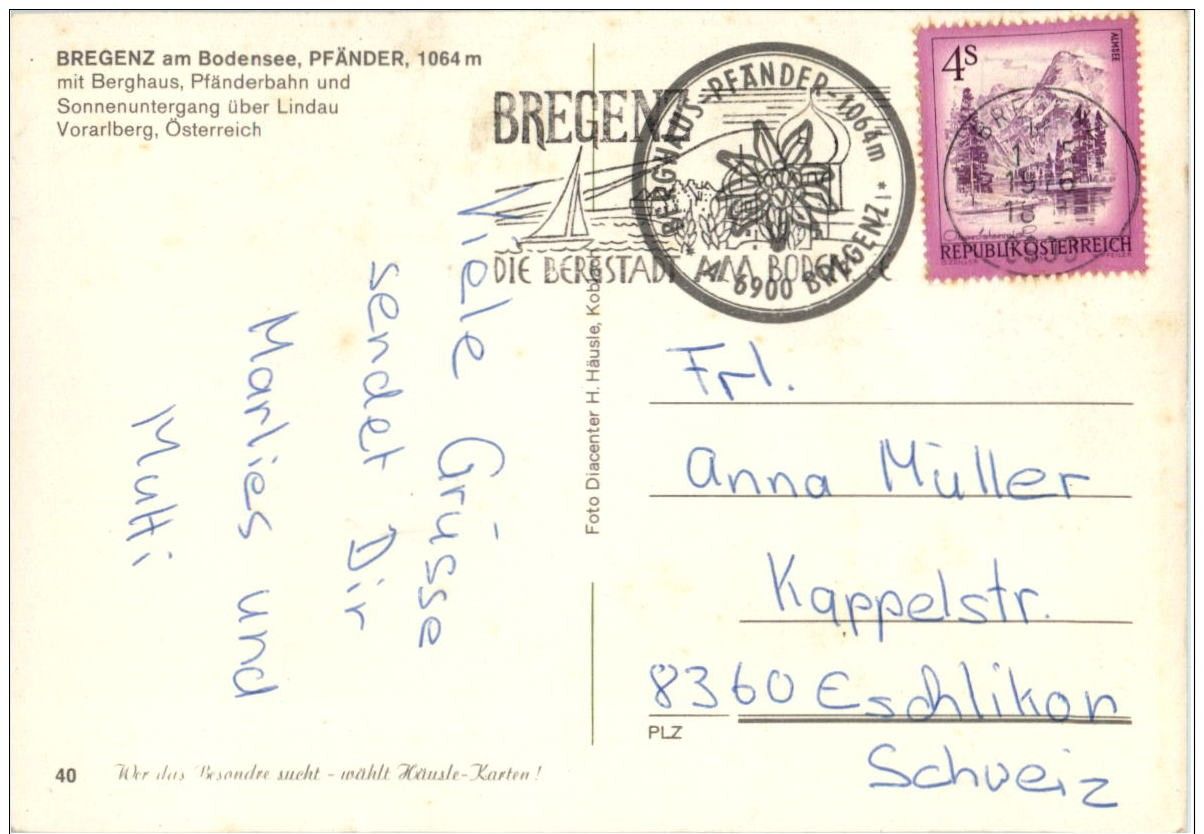 BREGENZ am Bodensee, PFÄNDER, 1064 m
mit Berghaus, Pfänderbahn und
Sonnenuntergang über Lindau
Vorarlberg, Österreich
BREGENZ
DIE BERGSTADT AM BODENSEE
BERGHAUS-PFÄNDER-1064m
* 6900 BREGENZ *
4S
ALMSEE
REPUBLIK ÖSTERREICH
Viele Grüsse
sendet Dir
Marlies und
Mutti
Foto Diacenter H. Häusle, Koblach
Frl.
Anna Müller
Kappelstr.
8360 Eschlikon
PLZ
Schweiz
40
Wer das Besondre sucht - wählt Häusle-Karten!